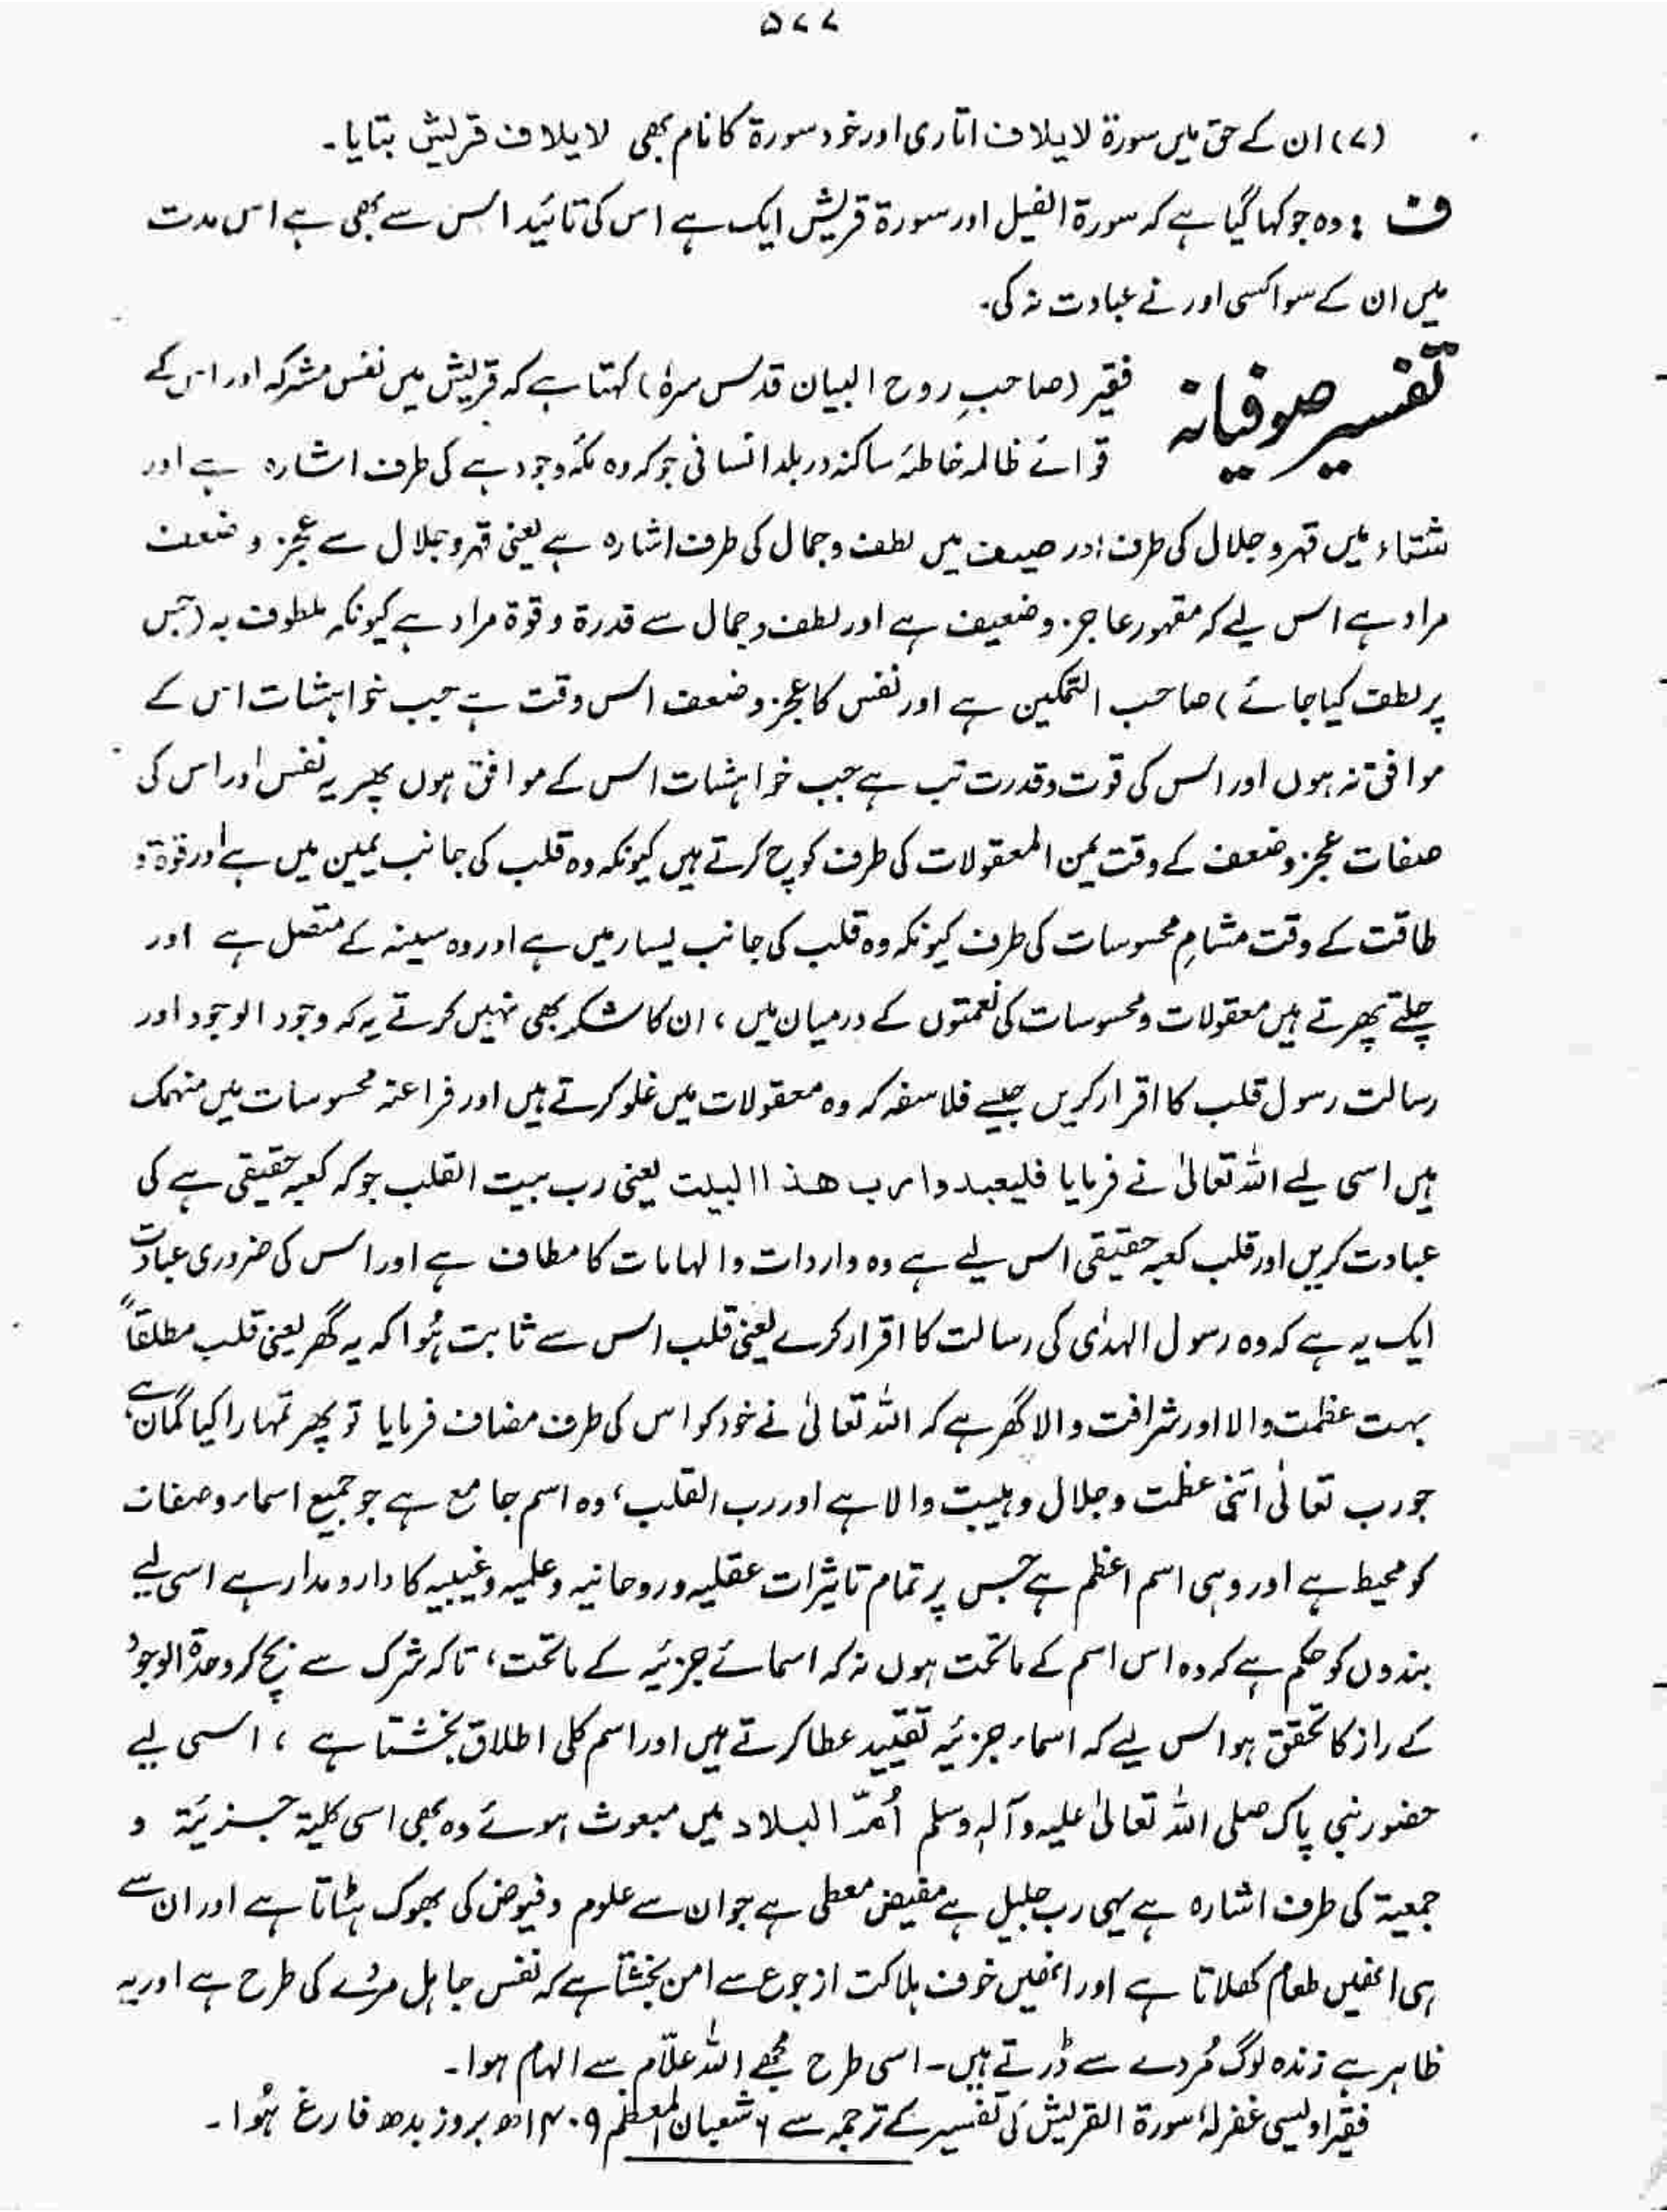 ۵۷۷
(۷) ان کے حق میں سورۃ لایلاف اتاری اور خود سورۃ کا نام بھی لایلاف قریش بتایا۔
ف : وہ جو کہا گیا ہے کہ سورۃ الفیل اور سورۃ قریش ایک ہے اس کی تائید اس سے بھی ہے اس مدت
میں ان کے سوا کسی اور نے عبادت نہ کی۔
تفسیر صوفیانہ فقیر (صاحبِ روح البیان قدس سرہٗ) کہتا ہے کہ قریش میں نفس مشرکہ اور اس کے
قوائے ظالمہ خاطئہ ساکنہ در بلد انسانی جو کہ وہ مکہ وجود ہے کی طرف اشارہ ہے اور
شتاء میں قہر و جلال کی طرف اور صیف میں لطف و جمال کی طرف اشارہ ہے یعنی قہر و جلال سے عجز و ضعف
مراد ہے اس لیے کہ مقہور عاجز و ضعیف ہے اور لطف و جمال سے قدرۃ و قوۃ مراد ہے کیونکہ ملطوف بہ (جس
پر لطف کیا جائے) صاحب التمکین ہے اور نفس کا عجز و ضعف اس وقت ہے جب خواہشات اس کے
موافق نہ ہوں اور اس کی قوت و قدرت تب ہے جب خواہشات اس کے موافق ہوں پھر یہ نفس اور اس کی
صفات عجز و ضعف کے وقت یمن المعقولات کی طرف کوچ کرتے ہیں کیونکہ وہ قلب کی جانب یمین میں ہے اور قوۃ و
طاقت کے وقت مشامِ محسوسات کی طرف کیونکہ وہ قلب کی جانب یسار میں ہے اور وہ سینہ کے متصل ہے اور
چلتے پھرتے ہیں معقولات و محسوسات کی نعمتوں کے درمیان میں ، ان کا شکر بھی نہیں کرتے یہ کہ وجود الوجود اور
رسالت رسول قلب کا اقرار کریں جیسے فلاسفہ کہ وہ معقولات میں غلو کرتے ہیں اور فراعنہ محسوسات میں منہمک
ہیں اسی لیے اللہ تعالیٰ نے فرمایا فلیعبدوا رب ھذا البیت یعنی رب بیت القلب جو کہ کعبہ حقیقی ہے کی
عبادت کریں اور قلب کعبہ حقیقی اس لیے ہے وہ واردات و الہامات کا مطاف ہے اور اس کی ضروری عبادت
ایک یہ ہے کہ وہ رسول الہدٰی کی رسالت کا اقرار کرے یعنی قلب اس سے ثابت ہُوا کہ یہ گھر یعنی قلب مطلقاً
بہت عظمت والا اور شرافت والا گھر ہے کہ اللہ تعالیٰ نے خود کو اس کی طرف مضاف فرمایا تو پھر تمہارا کیا گمان ہے
جو رب تعالیٰ اتنی عظمت و جلال و ہیبت والا ہے اور رب القلب، وہ اسم جامع ہے جو جمیع اسماء و صفات
کو محیط ہے اور وہی اسم اعظم ہے جس پر تمام تاثیرات عقلیہ و روحانیہ و علمیہ و غیبیہ کا دار و مدار ہے اسی لیے
بندوں کو حکم ہے کہ وہ اس اسم کے ماتحت ہوں نہ کہ اسمائے جزئیہ کے ماتحت، تاکہ شرک سے بچ کر وحدۃ الوجود
کے راز کا تحقق ہو اس لیے کہ اسماء جزئیہ تقیید عطا کرتے ہیں اور اسم کلی اطلاق بخشتا ہے ، اسی لیے
حضور نبی پاک صلی اللہ تعالیٰ علیہ وآلہٖ وسلم اُمّ البلاد میں مبعوث ہوئے وہ بھی اسی کلیۃ جزئیۃ و
جمعیۃ کی طرف اشارہ ہے یہی رب جلیل ہے مفیض معطی ہے جو ان سے علوم و فیوض کی بھوک ہٹاتا ہے اور ان سے
ہی انھیں طعام کھلاتا ہے اور انھیں خوف ہلاکت از جوع سے امن بخشتا ہے کہ نفس جاہل مردے کی طرح ہے اور یہ
ظاہر ہے زندہ لوگ مُردے سے ڈرتے ہیں۔ اسی طرح مجھے اللہ علّام سے الہام ہوا۔
فقیر اویسی غفرلہٗ سورۃ القریش کی تفسیر کے ترجمہ سے ۶ شعبان المعظم ۱۴۰۹ھ بروز بدھ فارغ ہُوا۔